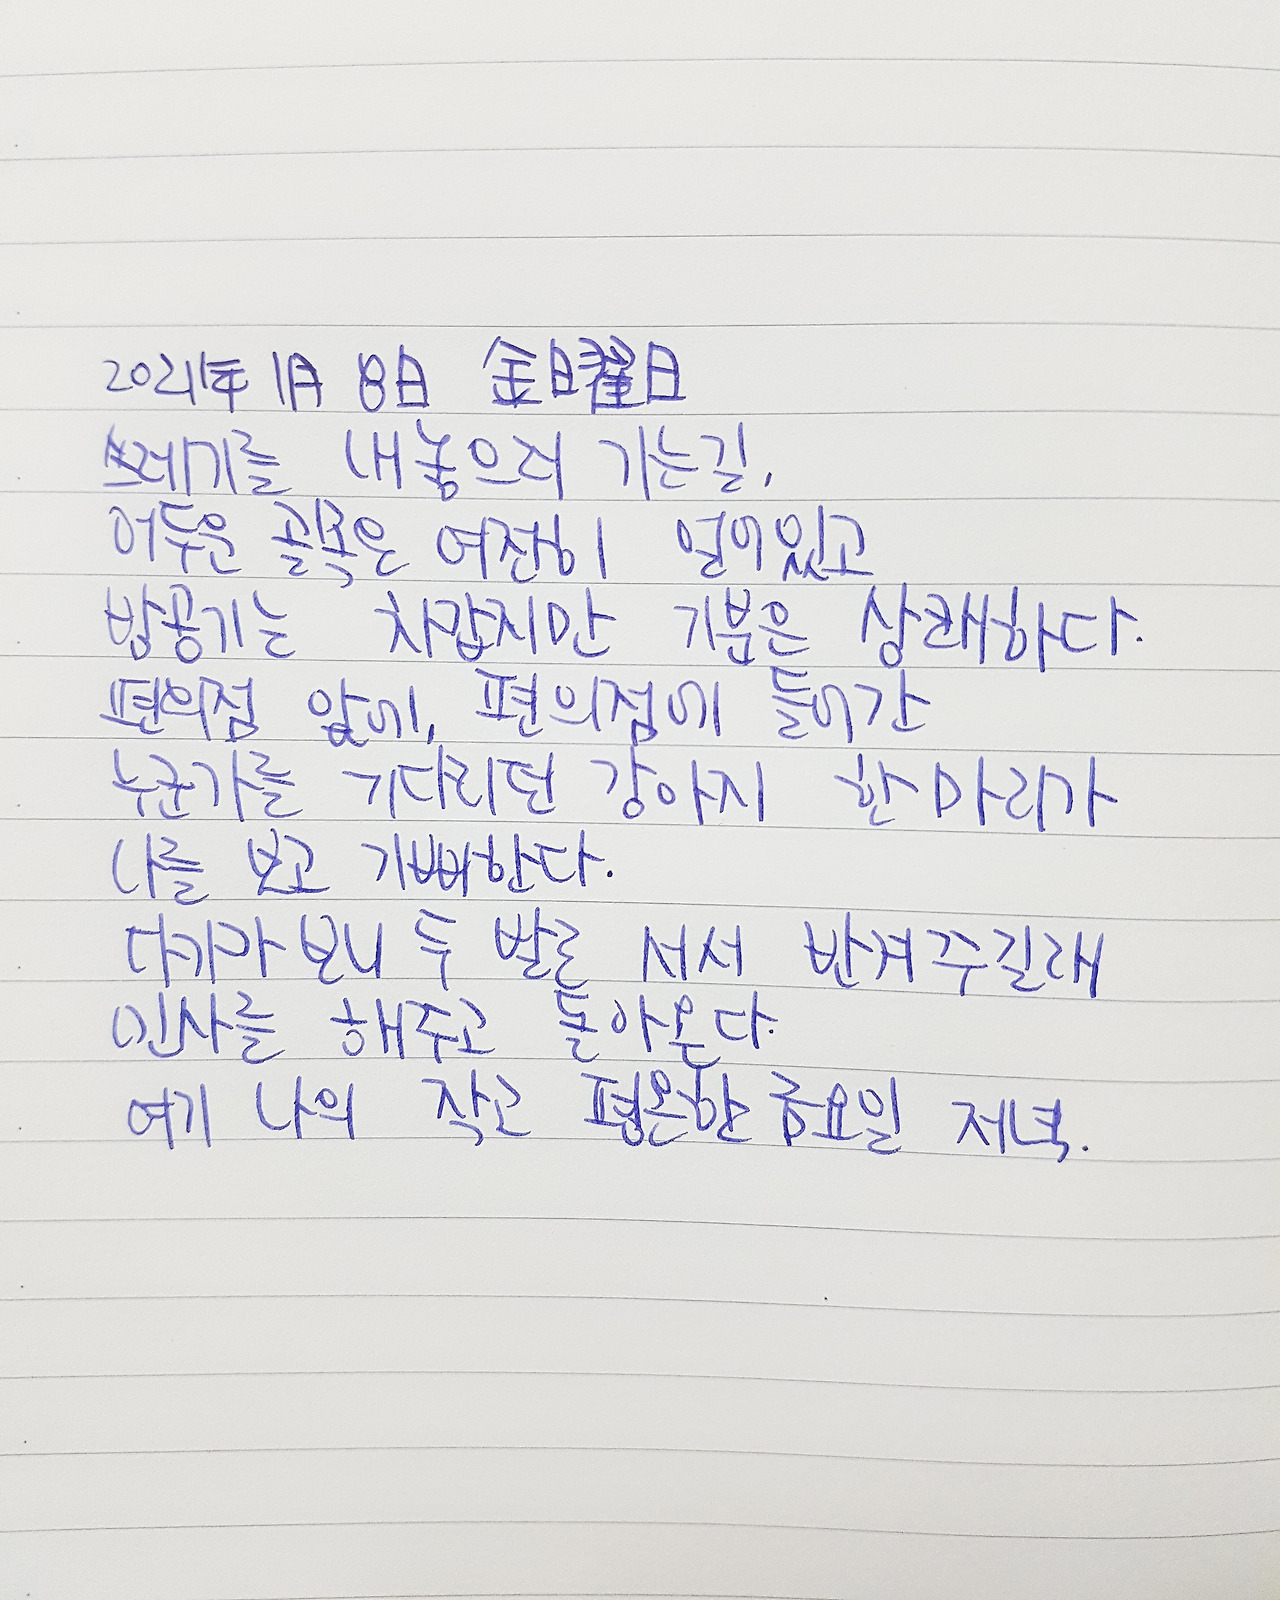 2021年 1月 8日 金曜日
쓰레기를 내놓으러 가는길,
어두운 골목은 여전히 얼어있고
밤공기는 차갑지만 기분은 상쾌하다.
편의점 앞에, 편의점에 들어간
누군가를 기다리던 강아지 한마리가
나를 보고 기뻐한다.
다가가 보니 두 발로 서서 반겨주길래
인사를 해주고 돌아온다.
여기 나의 작고 평온한 금요일 저녁.